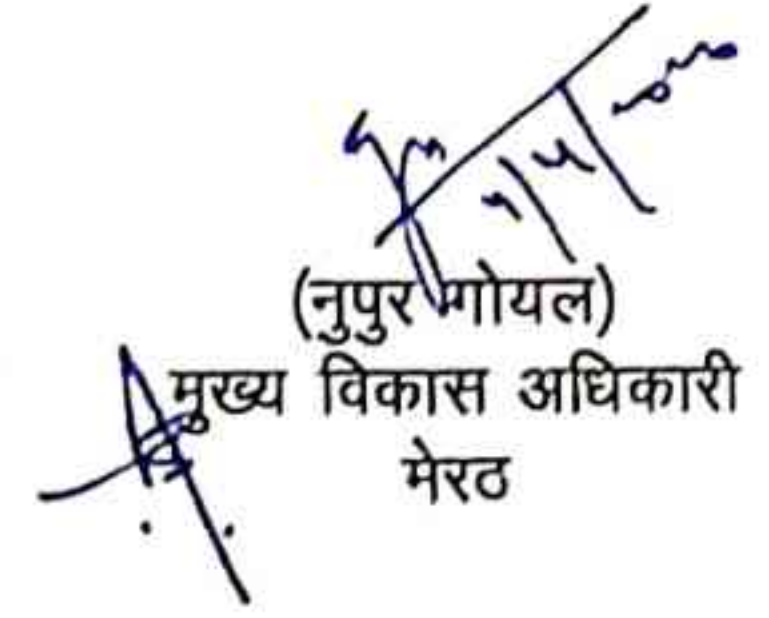 (नुपुर गोयल)
मुख्य विकास अधिकारी
मेरठ